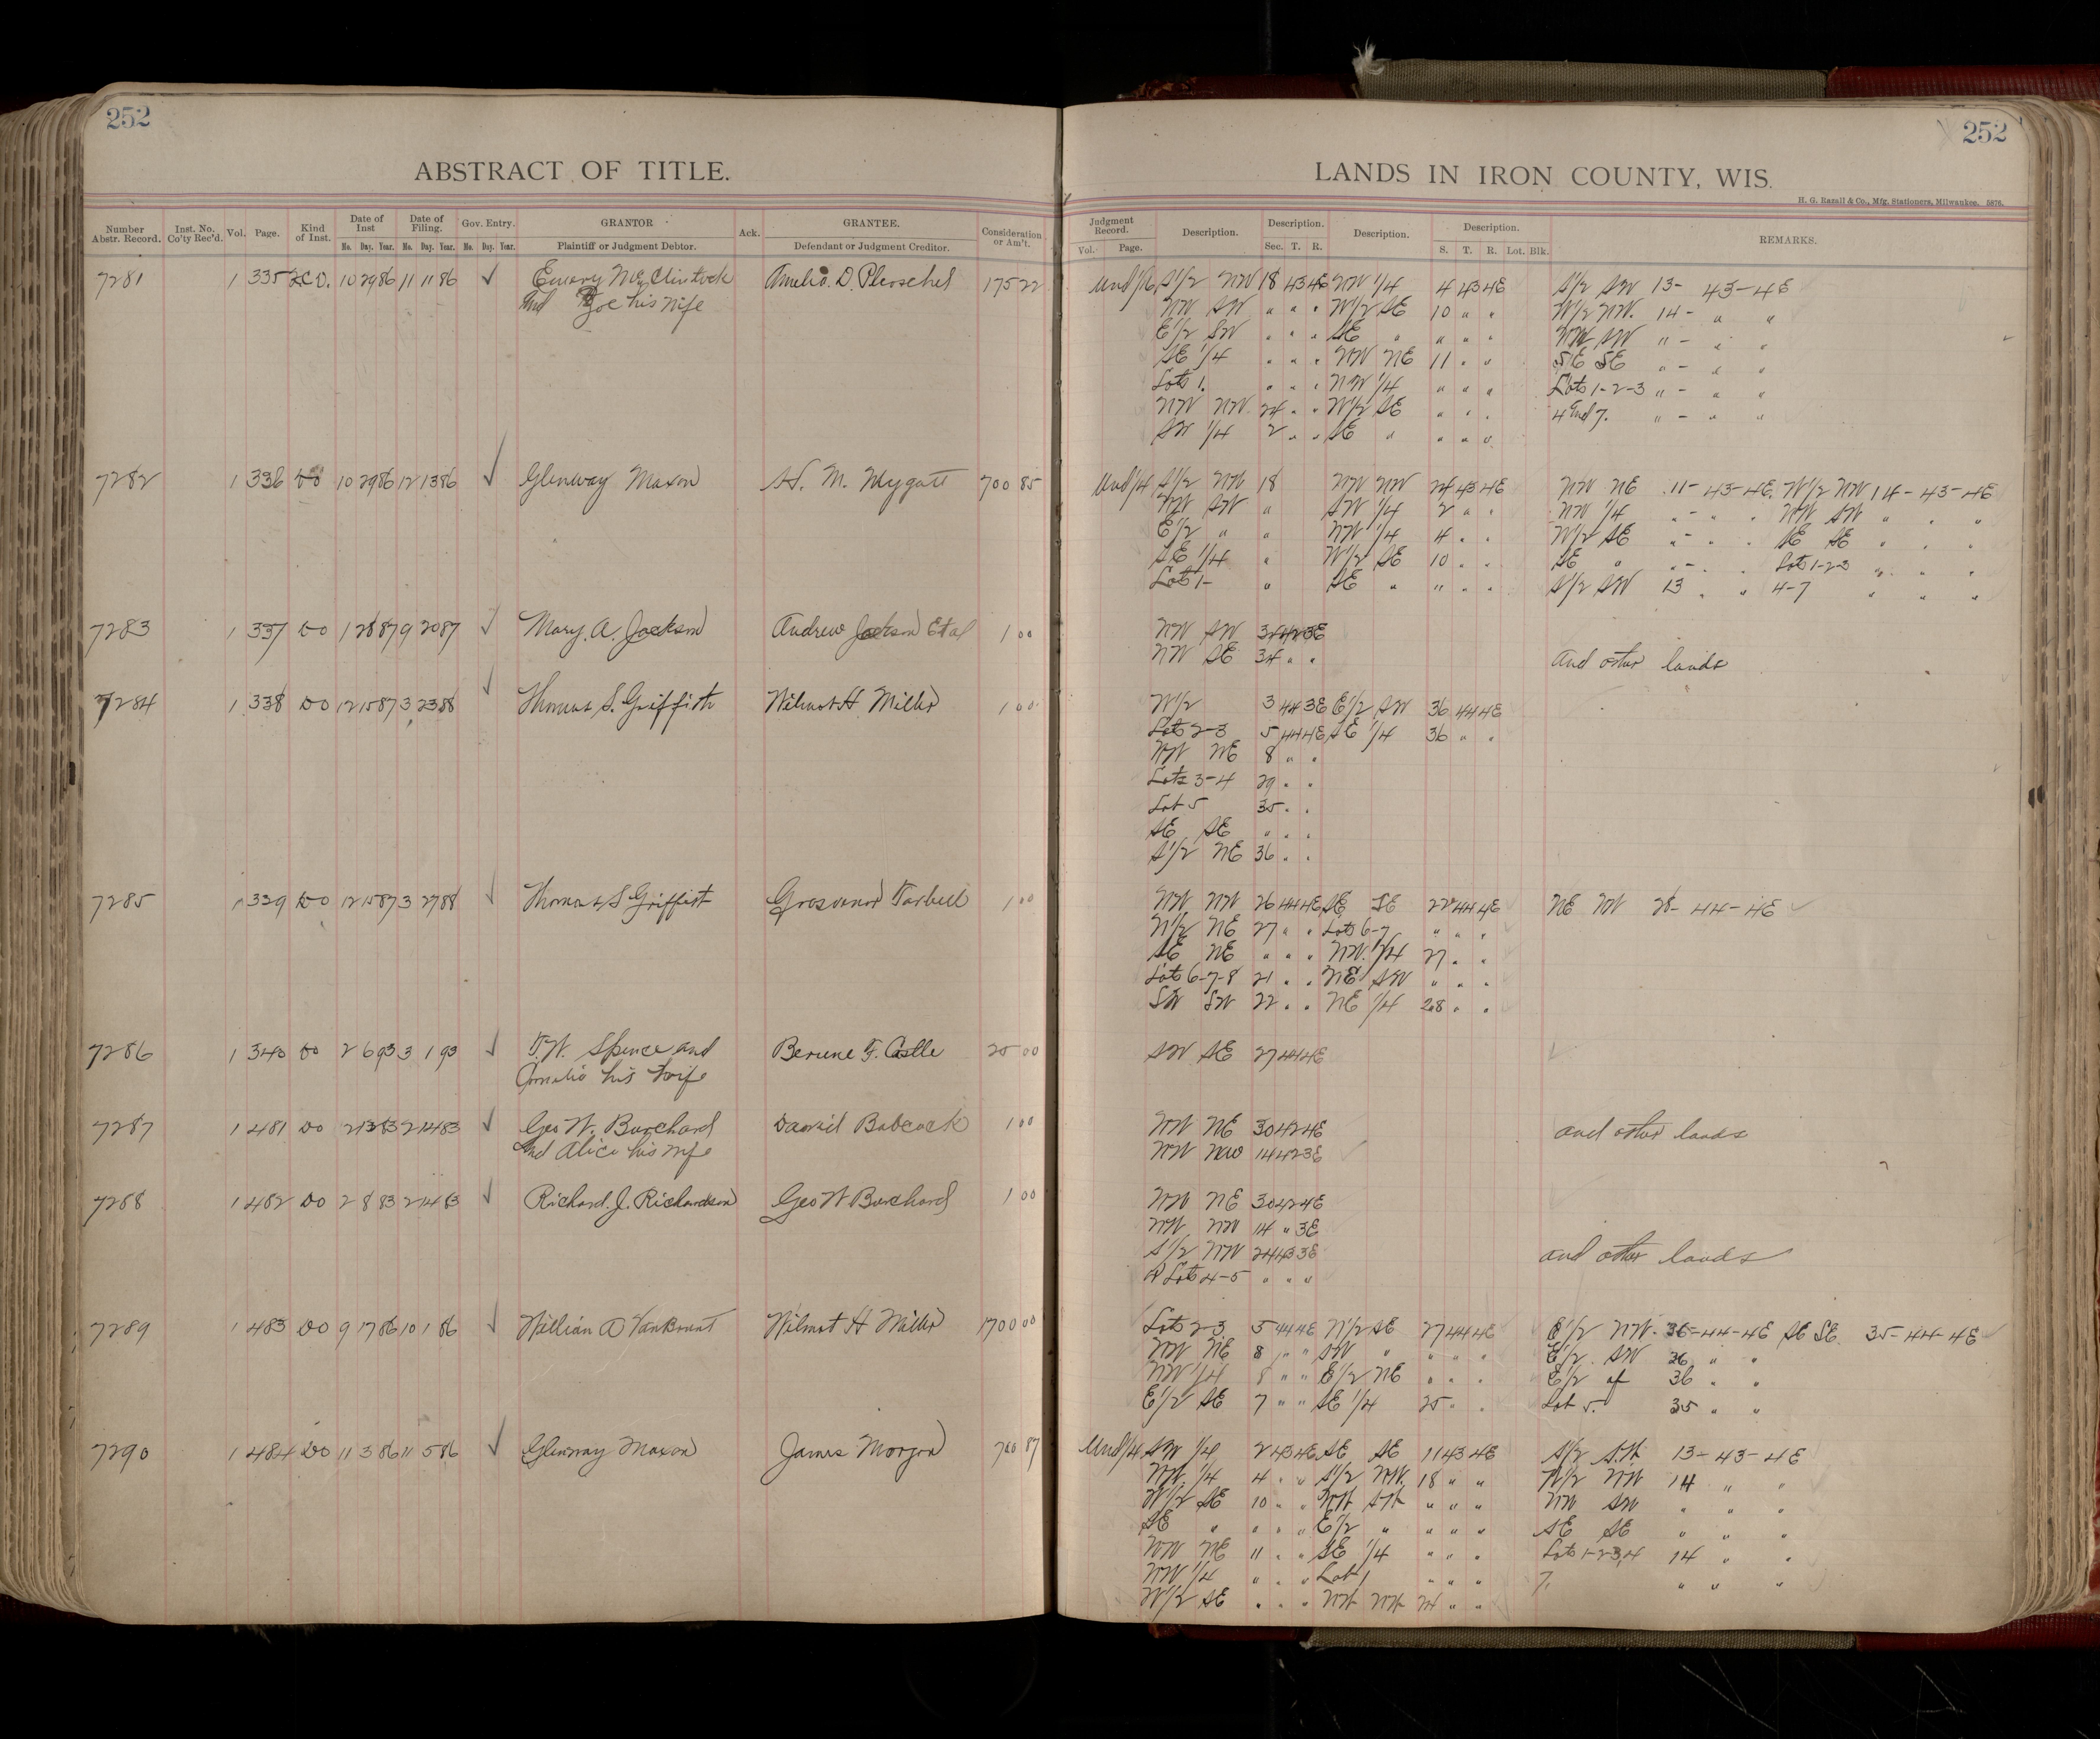 252
252
ABSTRACT OF TITLE.
LANDS IN IRON COUNTY, WIS.
H. G. Razall & Co., Mfg. Stationers, Milwaukee. 5876.
Number Abstr. Record. Inst. No. Co'ty Rec'd. Vol. Page. Kind of Inst. Date of Inst Date of Filing. Gov. Entry. GRANTOR Ack. GRANTEE. Consideration or Am't.
No. Day. Year. No. Day. Year. No. Day. Year. Plaintiff or Judgment Debtor. Defendant or Judgment Creditor.
Judgment Record. Description. Description. Description. Description. REMARKS.
Vol. Page. Sec. T. R. S. T. R. Lot. Blk.
7281 1 335 10 29 86 11 11 86 ✓ Emory McClintock Amelia D. 175 22
and Zoe his wife
Und 1/16 S1/2 NW 18 43 4E NW 1/4 4 43 4E S/2 SW 13- 43-4E
NW SW " " " W1/2 SE 10 " " W/2 NW. 14- " "
E1/2 SW " " " SE " " " " NW SW "- " "
SE 1/4 " " " NW NE 11 " " SE SE "- " "
Lots 1. " " " NW 1/4 " " " Lots 1-2-3 "- " "
NW NW 24 " " W1/2 SE " " " 4 and 7. "- " "
SW 1/4 2 " " SE " " " "
7282 1 336 Do 10 29 86 12 13 86 ✓ Glenway Maxon H. M. Mygatt 700 85
Und 1/4 S1/2 NW 18 NW NW 24 43 4E NW NE 11-43-4E. W1/2 NW 14-43-4E
NW SW " SW 1/4 2 " " NW 1/4 "-" " NW SW " " "
E1/2 " " NW 1/4 4 " " W/2 SE "-" " SE SE " " "
SE 1/4 " W1/2 SE 10 " " SE " "-" " Lots 1-2-3 " " "
Lots 1- " SE " " " " S/2 SW 13 " " 4-7 " " "
7283 1 337 Do 1 28 87 9 20 87 ✓ Mary. A. Jackson Andrew Jackson Etal 1 00
NW SW 35 42 3E
NW SE 34 " " and other lands
7284 1 338 Do 12 15 87 3 23 88 ✓ Thomas S. Griffith Wilmot H Miller 1 00
W1/2 3 44 3E E1/2 SW 36 44 4E
Lots 2-3 5 44 4E SE 1/4 36 " "
NW NE 8 " "
Lots 3-4 29 " "
Lot 5 35 " "
SE SE " " "
S1/2 NE 36 " "
7285 1 339 Do 12 15 87 3 27 88 ✓ Thomas S Griffith Grosvenor Tarbell 1 00
NW NW 26 44 4E SE SE 22 44 4E NE NW 28-44-4E ✓
N1/2 NE 27 " " Lots 6-7 " " "
SE NE " " " NW. 1/4 27 " "
Lots 6-7-8 21 " " NE SW " " "
SW SW 22 " " NE 1/4 28 " "
7286 1 340 Do 2 6 93 3 1 93 ✓ T. W. Spence and F. Castle 25 00
his wife
SW SE 27 44 4E
7287 1 481 Do 2 13 83 2 14 83 ✓ Geo W. Burchard David Babcock 1 00
and Alice his wife
NW NE 30 42 4E and other lands
NW NW 14 42 3E
7288 1 482 Do 2 8 83 2 14 83 ✓ Richard. J. Richardson Geo W Burchard 1 00
NW NE 30 42 4E
NW NW 14 " 3E
S1/2 NW 24 43 3E and other lands
Lots 4-5 " " "
7289 1 483 Do 9 17 86 10 1 86 ✓ William D Wilmot H Miller 1700 00
Lots 2 3 5 44 4E N1/2 SE 27 44 4E E1/2 NW. 36-44-4E SE SE. 35-44-4E
NW NE 8 " " SW " " " " E1/2. SW 36 " "
NW 1/4 8 " " E1/2 NE " " " E1/2 of 36 " "
E1/2 SE 7 " " SE 1/4 25 " " Lot 5. 35 " "
7290 1 484 Do 11 3 86 11 5 86 ✓ Glenway Maxon James Morgan 700 87
Und 1/4 SW 1/4 2 43 4E SE SE 11 43 4E S1/2 SW 13-43-4E
NW. 1/4 4 " " S1/2 NW. 18 " " W/2 NW 14 " "
W1/2 SE 10 " " NW SW " " " NW SW " " "
SE " " " " E1/2 " " " " SE SE " " "
NW NE 11 " " SE 1/4 " " " Lots 1-2-3,4 14 " "
NW 1/4 " " " Lot 1 " " " 7. " " "
W1/2 SE " " " NW NW 24 " "